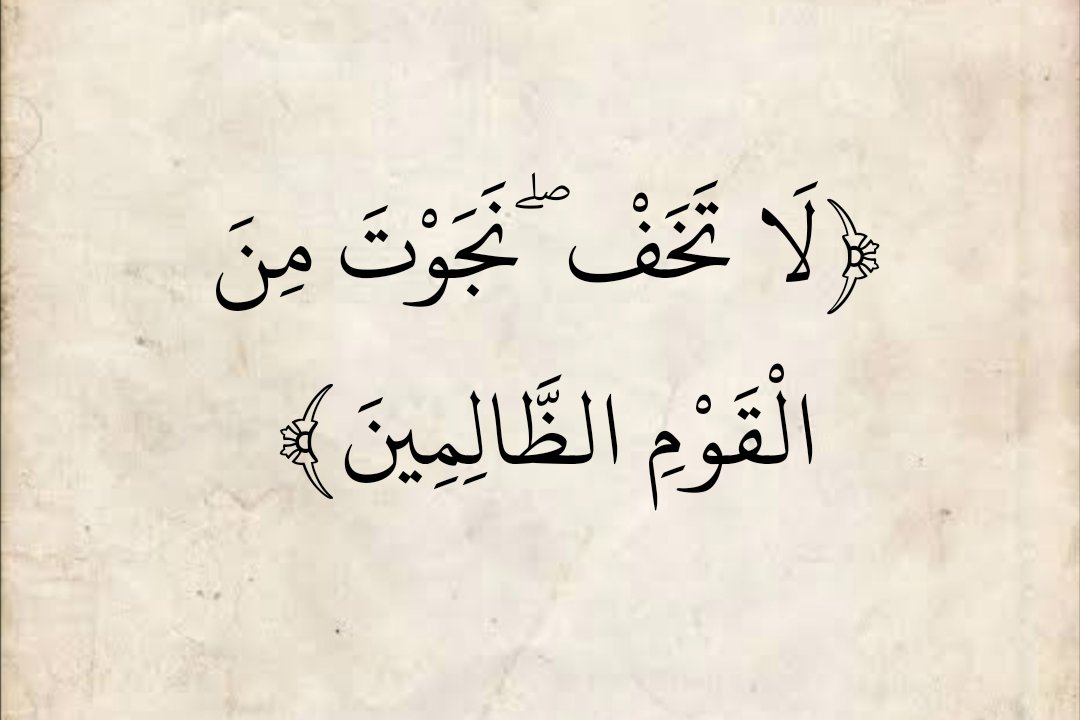 ﴿لَا تَخَفْ ۖ نَجَوْتَ مِنَ
الْقَوْمِ الظَّالِمِينَ﴾